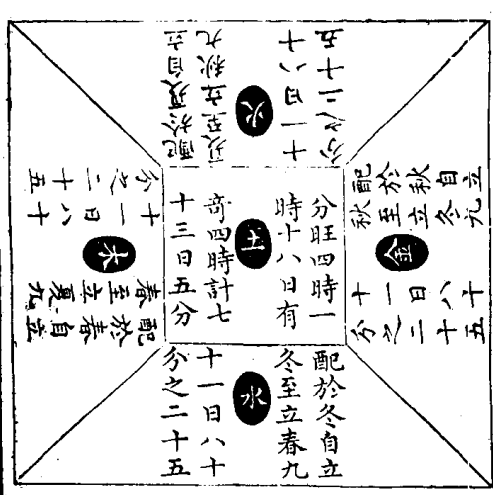 配於夏自立
夏至立秋九
火
十一日八十
分之二十五
配於秋自立
秋至立冬九
金
十一日八十
分之二十五
分旺四時一
時十八日有
土
奇四時計七
十三日五分
配於春自立
春至立夏九
木
十一日八十
分之二十五
配於冬自立
冬至立春九
水
十一日八十
分之二十五